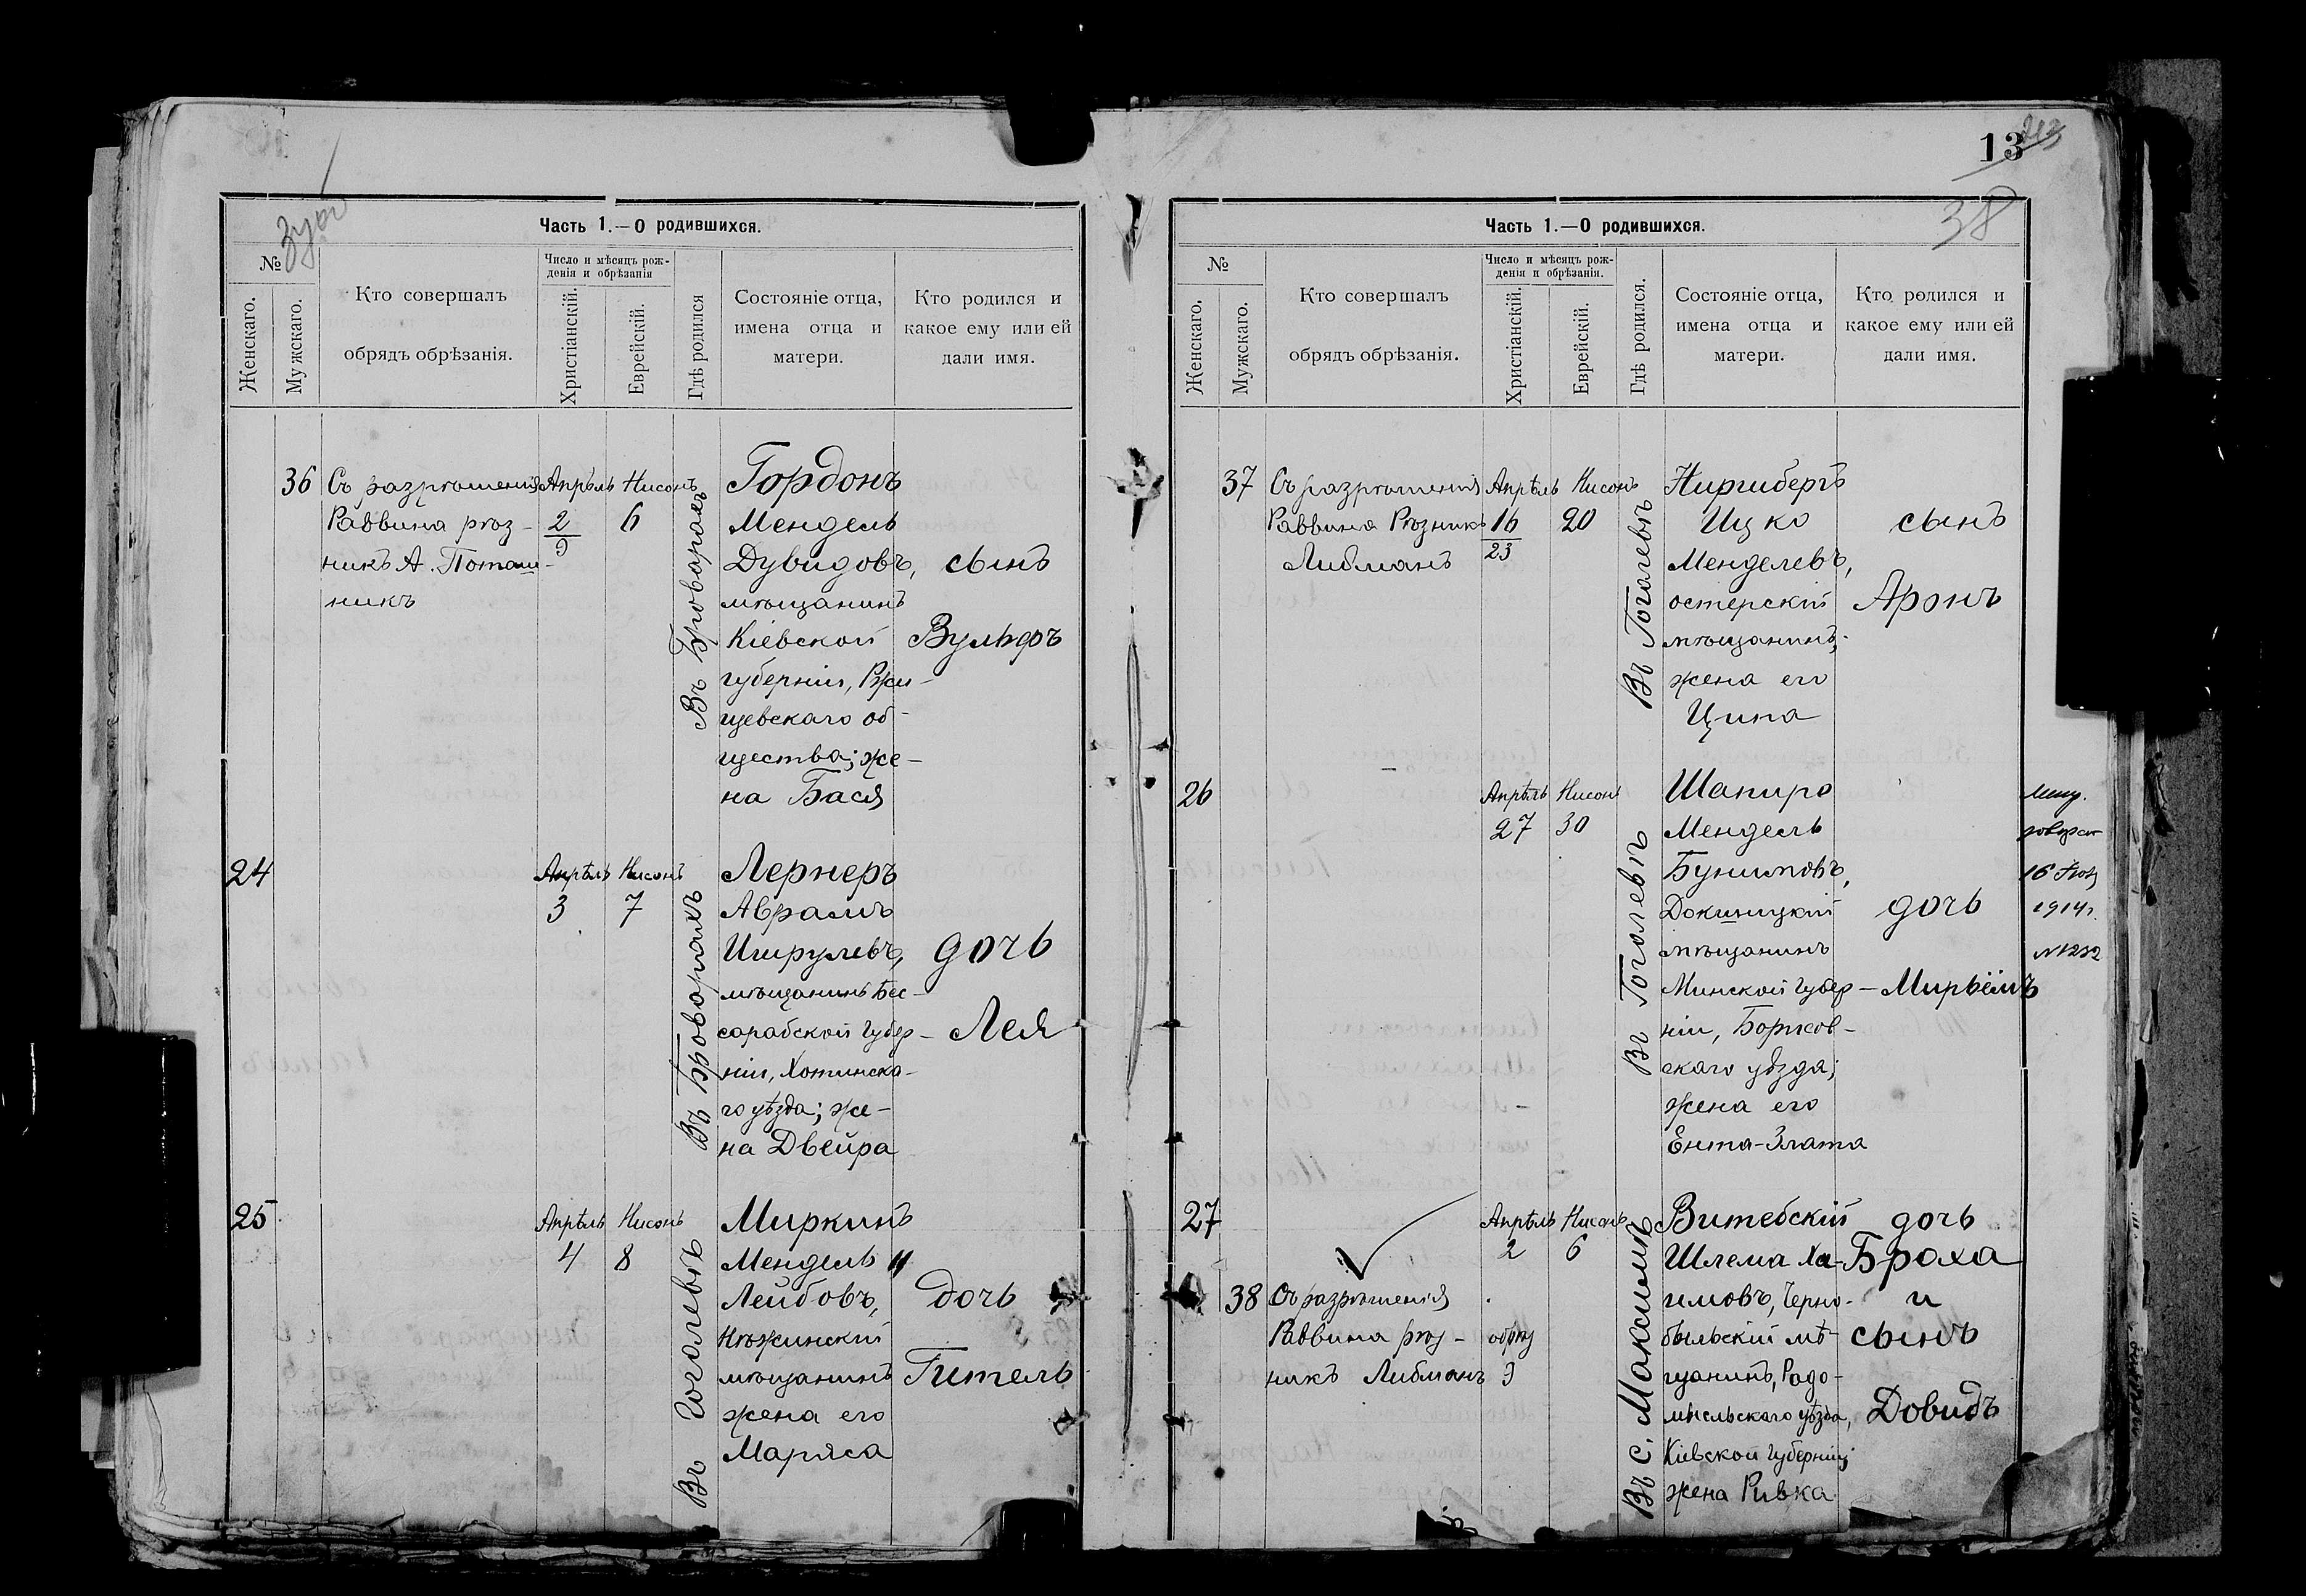 Часть 1.—О родившихся.
№
Женскаго.
Мужскаго.
Кто совершалъ
обрядъ обрѣзанія.
Число и мѣсяцъ рож-
денія и обрѣзанія
Христіанскій.
Еврейскій.
Гдѣ родился
Состояніе отца,
имена отца и
матери.
Кто родился и
какое ему или ей
дали имя.
36
Съ разрѣшенія
Раввина рѣз-
никъ А. Поташ-
никъ
Апрѣль
2
9
Нисонъ
6
Въ Броварахъ
Гордонъ
Мендель
Дувидовъ,
мѣщанинъ
Кіевской
губерніи, Ржи-
щевскаго об-
щества; же-
на Бася
сынъ
Вульфъ
24
Апрѣль
3
Нисонъ
7
Въ Броварахъ
Лернеръ
Аврамъ
Шрулевъ,
мѣщанинъ Бес-
сарабской губер-
ніи, Хотинска-
го уѣзда; же-
на Двейра
дочь
Лея
25
Апрѣль
4
Нисонъ
8
Въ Гоголевѣ
Миркинъ
Мендель
Лейбовъ,
Нѣжинскій
мѣщанинъ
жена его
Маряса
дочь
Гитель
13
38
Часть 1.—О родившихся.
№
Женскаго.
Мужскаго.
Кто совершалъ
обрядъ обрѣзанія.
Число и мѣсяцъ рож-
денія и обрѣзанія.
Христіанскій.
Еврейскій.
Гдѣ родился.
Состояніе отца,
имена отца и
матери.
Кто родился и
какое ему или ей
дали имя.
37
Съ разрѣшенія
Раввина Рѣзникъ
Либманъ
Апрѣль
16
23
Нисонъ
20
Въ Гоголевѣ
Ицко
Менделевъ,
остерскій
мѣщанинъ;
жена его
Цина
сынъ
Аронъ
26
Апрѣль
27
Нисонъ
30
Въ Гоголевѣ
Шапиро
Мендель
Бунимовъ,
Докшицкій
мѣщанинъ
Минской губер-
ніи, Борисов-
скаго уѣзда;
жена его
Ента-Злата
дочь
Мирьёмъ
1914г.
27
Апрѣль
2
Нисонъ
6
38
Съ разрѣшенія
Раввина рѣз-
никъ Либманъ
обрѣз
9
Въ с. Максимъ
Витебскій
Шлема Ха-
имовъ, Черно-
быльскій мѣ-
щанинъ, Радо-
мысльскаго уѣзда,
Кіевской губерніи;
жена Ривка
дочь
Броха
и
сынъ
Довидъ